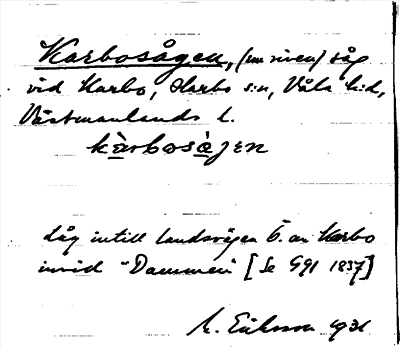 Karbosågen, (nu riven) såg
vid Karbo, Harbo s:n, Våla h:d,
Västmanlands l.
kàrbosàgen
Låg intill landsvägen Ö. om Karbo
invid "Dammen" [Se G91 1837]
M. Eriksson 1931